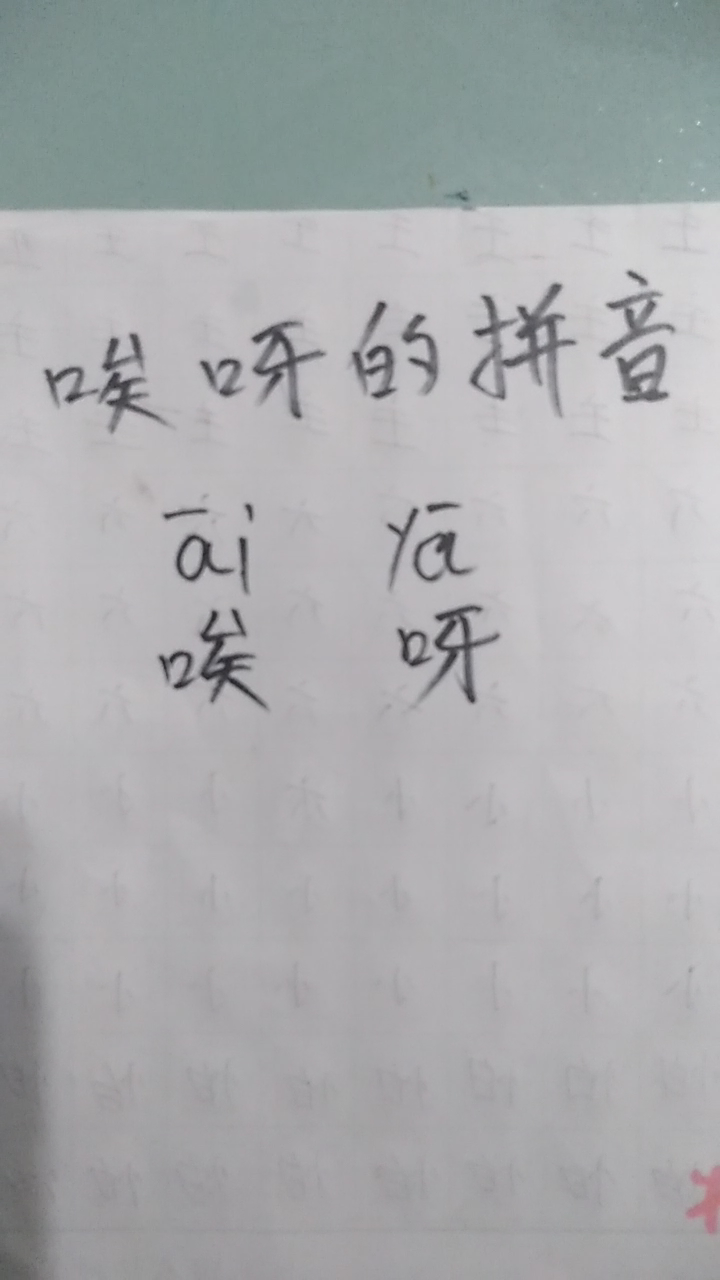 唉呀的拼音
āi yā
唉 呀